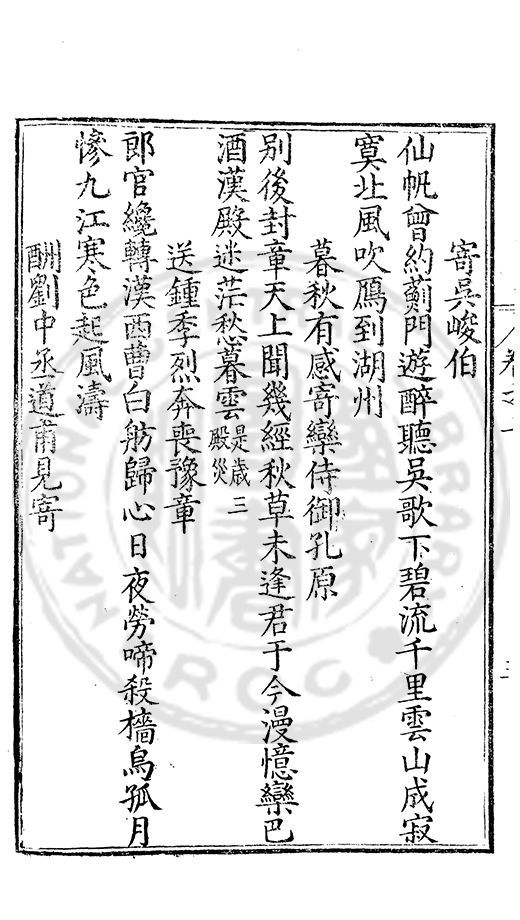 寄吳峻伯
仙帆曾約薊門遊醉聽吳歌下碧流千里雲山成寂
寞北風吹鴈到湖州
暮秋有感寄欒侍御孔原
別後封章天上聞幾經秋草未逢君于今漫憶欒巴
酒漢殿迷茫愁暮雲是歲三殿災
送鍾季烈奔喪豫章
郎官纔轉漢西曹白舫歸心日夜勞啼殺檣烏孤月
慘九江寒色起風濤
酬劉中丞道甫見寄